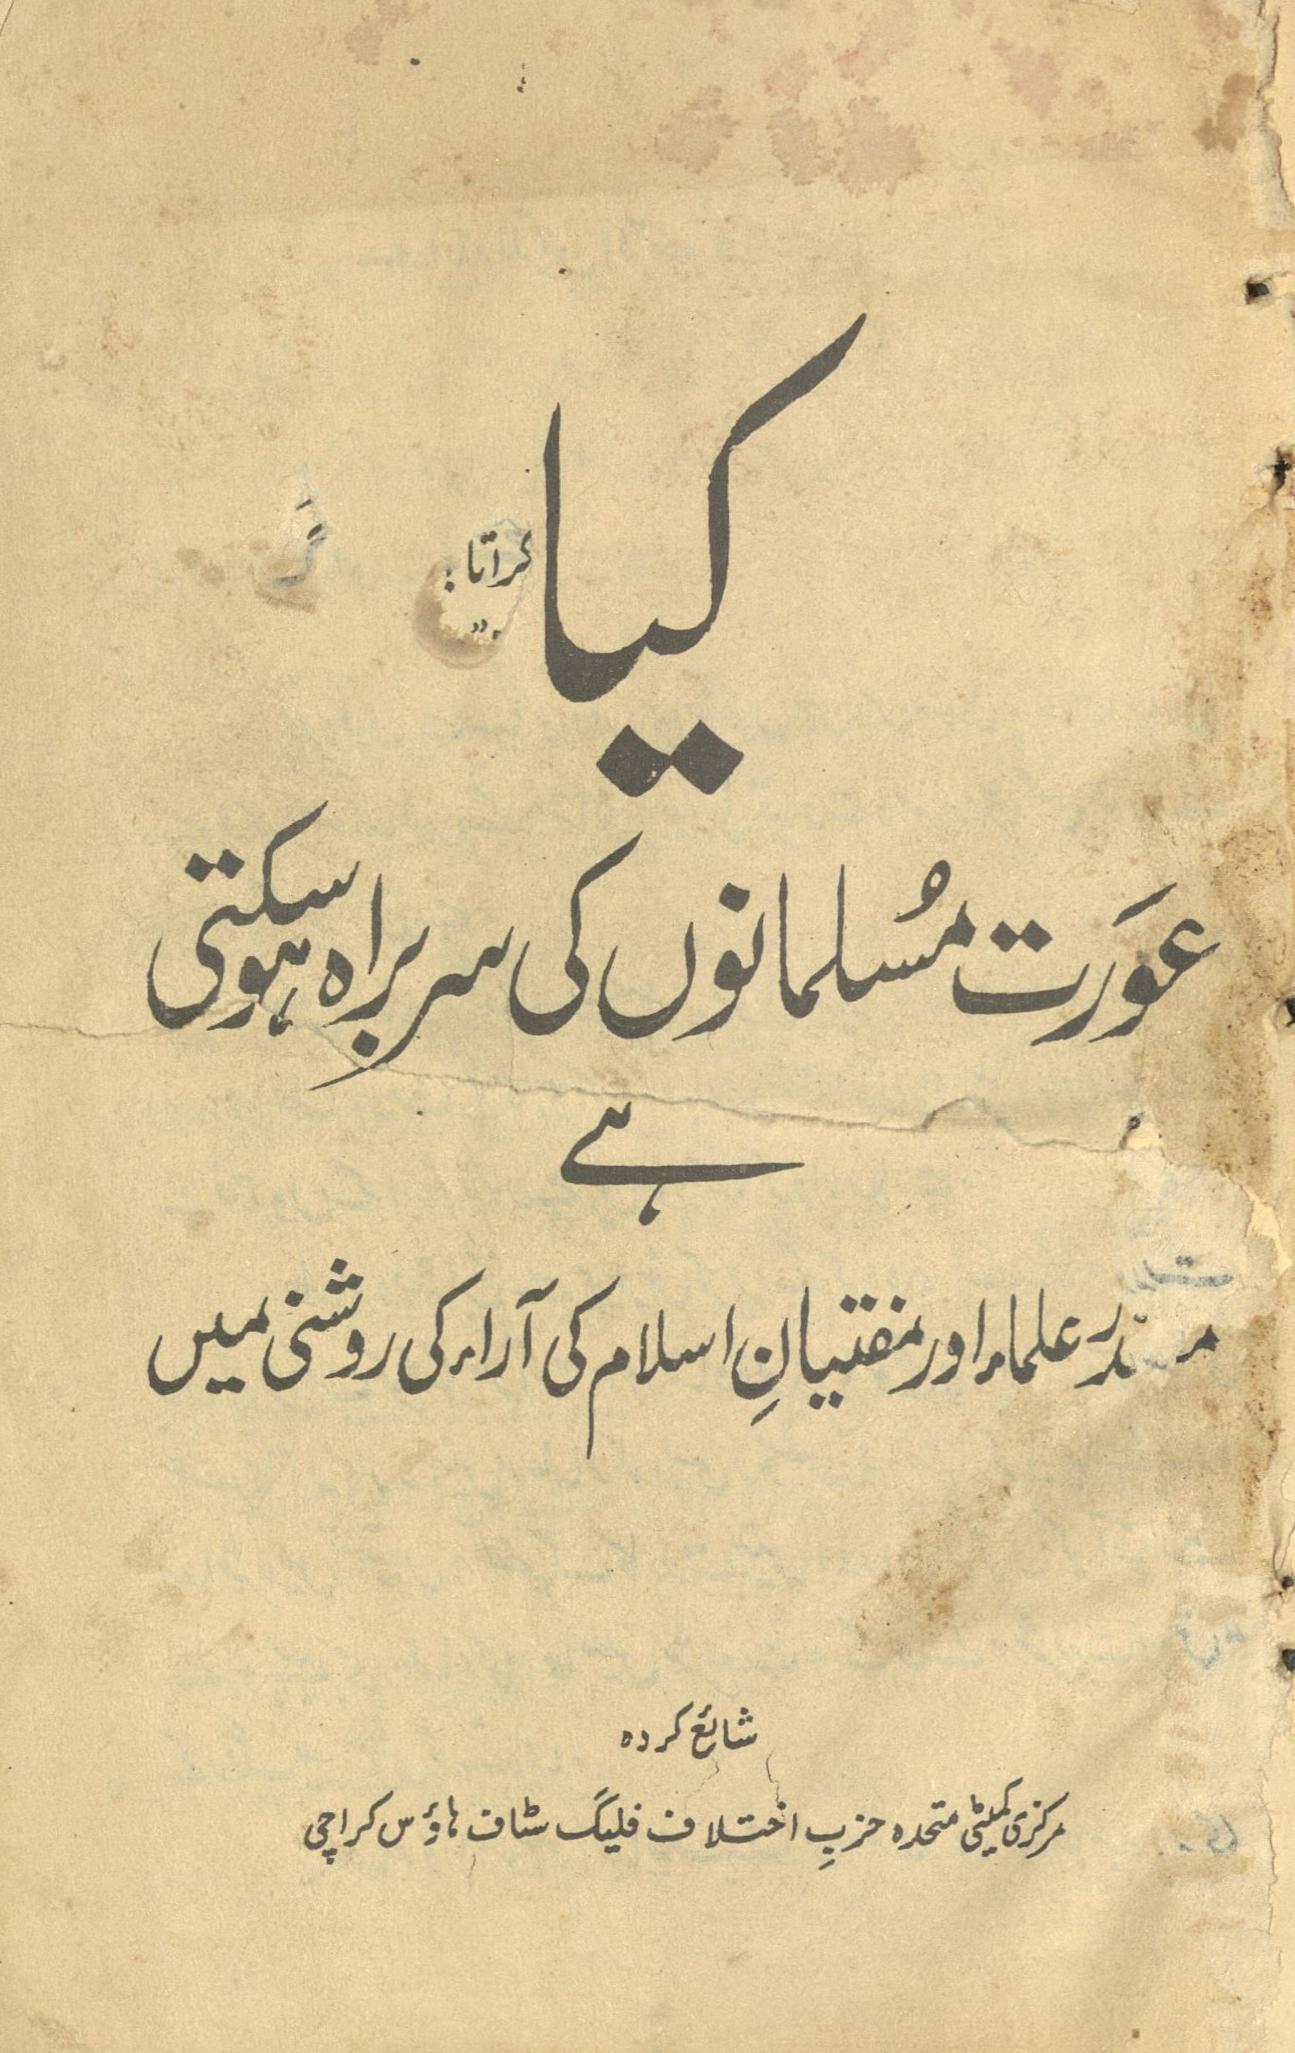 کیا
عورت مُسلمانوں کی سربراہ ہوسکتی
ہے
علماء اور مفتیانِ اسلام کی آراء کی روشنی میں
شائع کردہ
مرکزی کمیٹی متحدہ حزبِ اختلاف فلیگ سٹاف ہاؤس کراچی